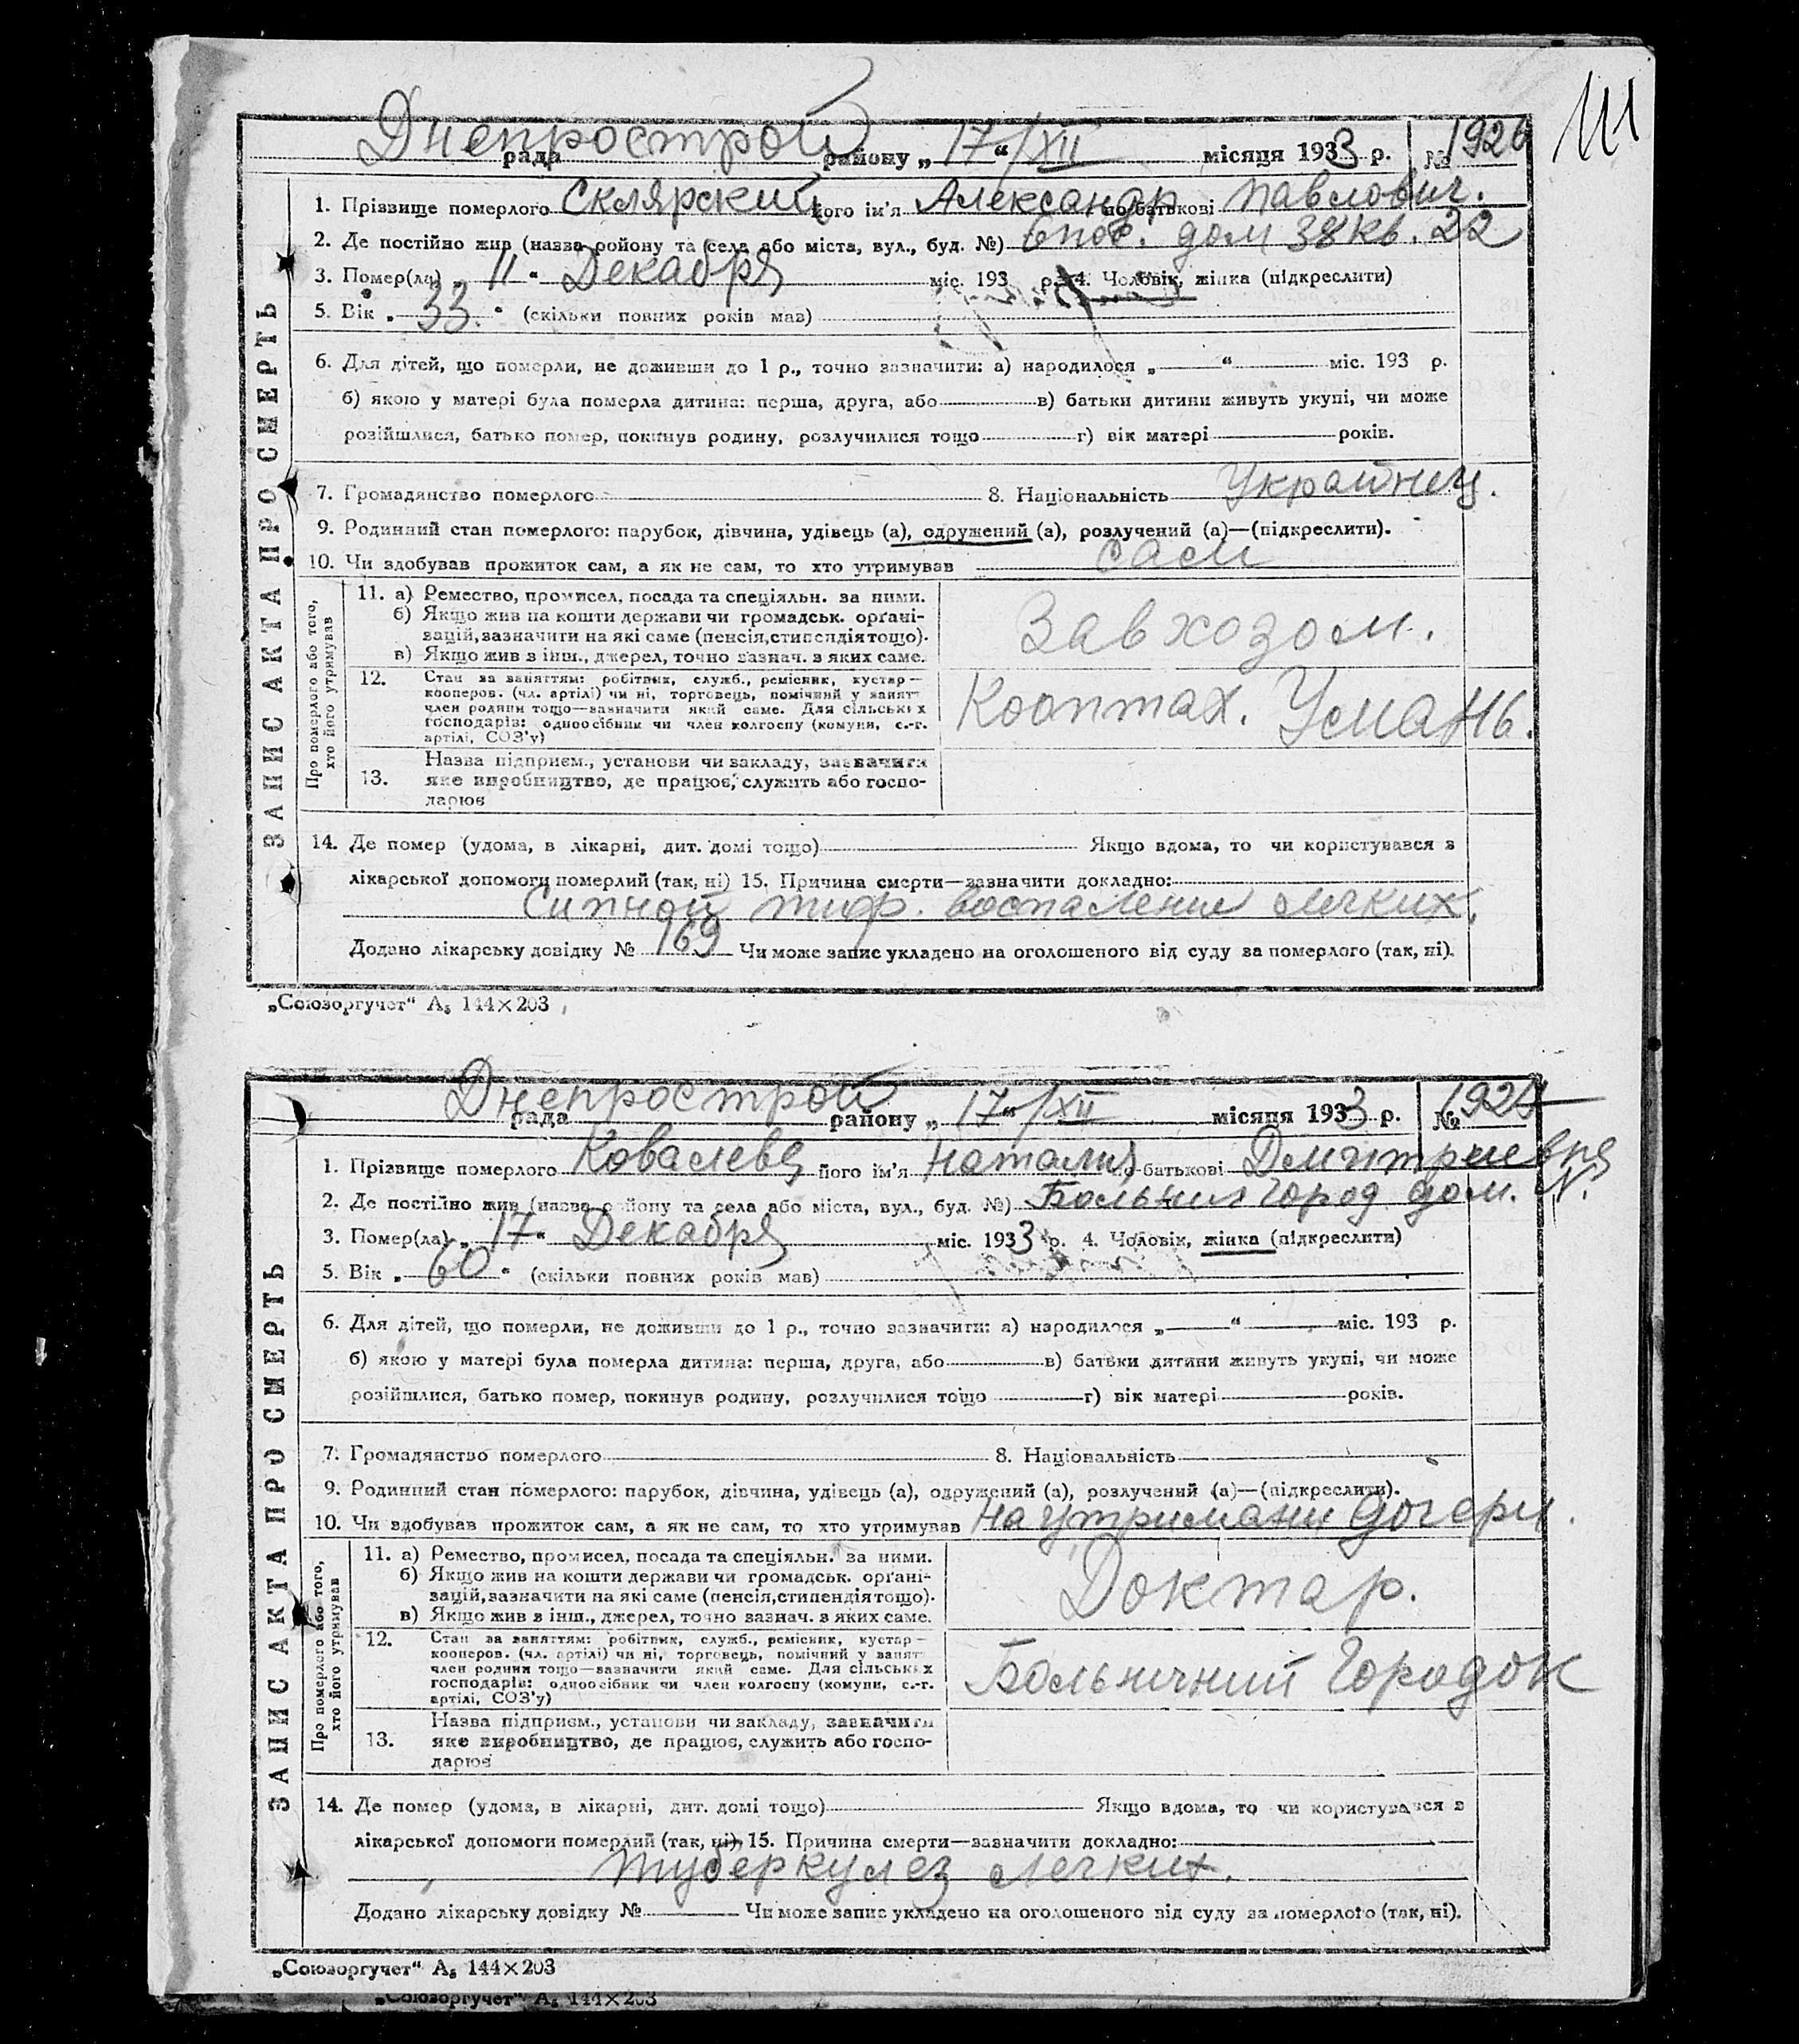 111
Днепрострой
рада району „ 17 “ /XII місяця 1933 р. № 1926
1. Прізвище померлого Склярский його ім'я Александр по-батькові Павлович.
2. Де постійно жив (назва ройону та села або міста, вул., буд. №) 6 пос. дом 38 кв. 22
3. Помер(ла) „ 11 “ Декабря міс. 193 р. 4. Чоловік, жінка (підкреслити)
5. Вік „ 33. “ (скільки повних років мав)
6. Для дітей, що померли, не доживши до 1 р., точно зазначити: а) народилося „ “ міс. 193 р.
б) якою у матері була померла дитина: перша, друга, або в) батьки дитини живуть укупі, чи може
розійшлися, батько помер, покинув родину, розлучилися тощо г) вік матері років.
7. Громадянство померлого 8. Національність Украинец.
9. Родинний стан померлого: парубок, дівчина, удівець (а), одружений (а), розлучений (а)—(підкреслити).
10. Чи здобував прожиток сам, а як не сам, то хто утримував сам
ЗАПИС АКТА ПРО СМЕРТЬ
Про померлого або того, хто його утримував
11. а) Ремество, промисел, посада та спеціяльн. за ними.
б) Якщо жив на кошти держави чи громадськ. орґані-
зацій, зазначити на які саме (пенсія, стипендія тощо).
в) Якщо жив з інш., джерел, точно зазнач. з яких саме.
Завхозом.
12. Стан за заняттям: робітник, служб., ремісник, кустар—
кооперов. (чл. артілі) чи ні, торговець, помічний у занят
член родини тощо—зазначити який саме. Для сільських
господарів: одноосібник чи член колгоспу (комуни, с.-г.
артілі, СОЗ'у)
Кооптах. Умань.
13. Назва підприєм., установи чи закладу, зазначити
яке виробництво, де працює, служить або госпо-
дарює
14. Де помер (удома, в лікарні, дит. домі тощо) Якщо вдома, то чи користувався з
лікарської допомоги померлий (так, ні) 15. Причина смерти—зазначити докладно:
Сипной тиф. воспаление легких.
Додано лікарську довідку № 169 Чи може запис укладено на оголошеного від суду за померлого (так, ні).
„Союзоргучет“ А₅ 144×203
Днепрострой
рада району „ 17 “ /XII місяця 1933 р. №
1. Прізвище померлого Ковалева його ім'я Наталия по-батькові Дмитриевна
2. Де постійно жив (назва району та села або міста, вул., буд. №) Больнич город дом. №
3. Помер(ла) „ 17 “ Декабря міс. 1933 р. 4. Чоловік, жінка (підкреслити)
5. Вік „ 60 “ (скільки повних років мав)
6. Для дітей, що померли, не доживши до 1 р., точно зазначити: а) народилося „ “ міс. 193 р.
б) якою у матері була померла дитина: перша, друга, або в) батьки дитини живуть укупі, чи може
розійшлися, батько помер, покинув родину, розлучилися тощо г) вік матері років.
7. Громадянство померлого 8. Національність
9. Родинний стан померлого: парубок, дівчина, удівець (а), одружений (а), розлучений (а)—(підкреслити).
10. Чи здобував прожиток сам, а як не сам, то хто утримував на утримани дочери.
ЗАПИС АКТА ПРО СМЕРТЬ
Про померлого або того, хто його утримував
11. а) Ремество, промисел, посада та спеціяльн. за ними.
б) Якщо жив на кошти держави чи громадськ. орґані-
зацій, зазначити на які саме (пенсія, стипендія тощо).
в) Якщо жив з інш., джерел, точно зазнач. з яких саме.
Доктар.
12. Стан за заняттям: робітник, служб., ремісник, кустар—
кооперов. (чл. артілі) чи ні, торговець, помічний у занят
член родини тощо—зазначити який саме. Для сільських
господарів: одноосібник чи член колгоспу (комуни, с.-г.
артілі, СОЗ'у)
Больничний Городок
13. Назва підприєм., установи чи закладу, зазначити
яке виробництво, де працює, служить або госпо-
дарює
14. Де помер (удома, в лікарні, дит. домі тощо) Якщо вдома, то чи користувався з
лікарської допомоги померлий (так, ні) 15. Причина смерти—зазначити докладно:
туберкулез легких.
Додано лікарську довідку № Чи може запис укладено на оголошеного від суду за померлого (так, ні).
„Союзоргучет“ А₅ 144×203
„Союзоргучет“ А₅ 144×203